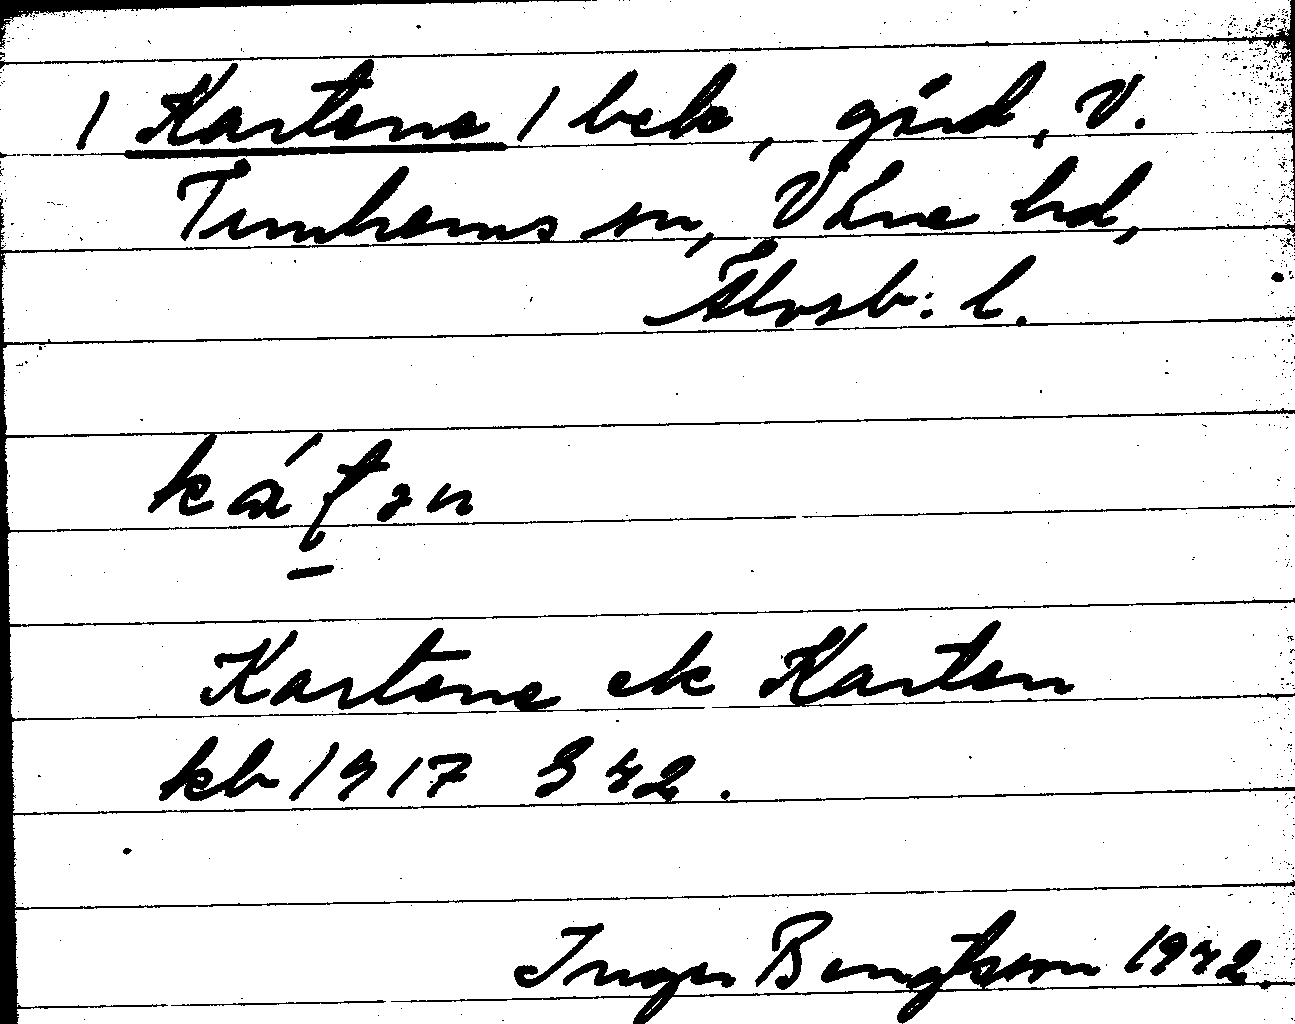 / Kartene / bek, gård, V.
Tunhems sn, Väne hd,
Älvsb: l.
Kartene ek Karten
kb 1917 S 42.
Inger Bengtsson 1942.